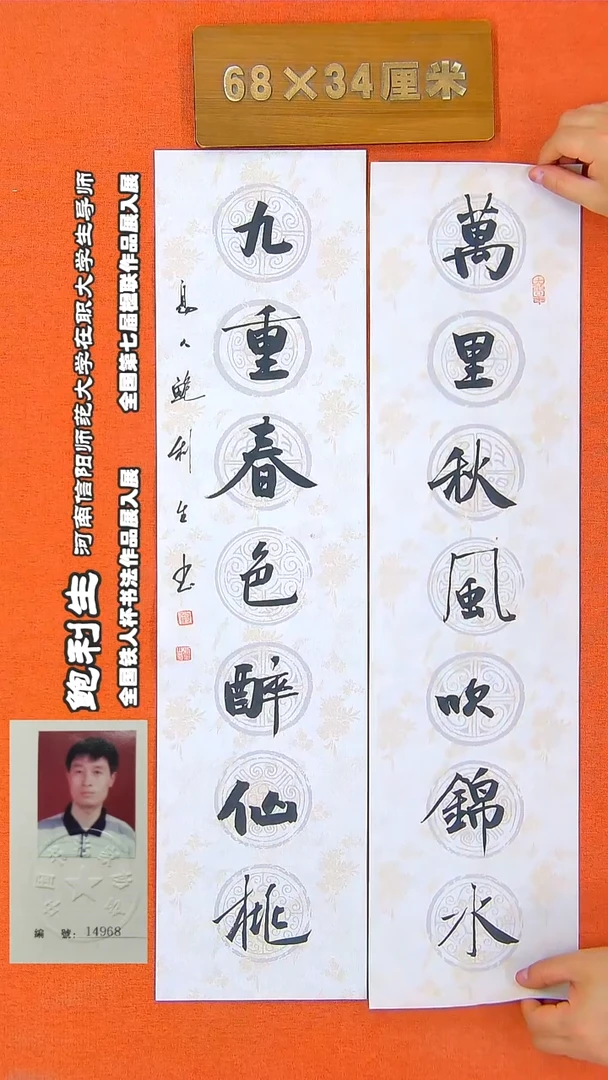 68×34厘米
萬里秋風吹錦水
九重春色醉仙桃
息人鮑利生书
鲍利生
河南信阳师范大学在职大学生导师
全国铁人杯书法作品展入展
全国第七届楹联作品展入展
編號：14968